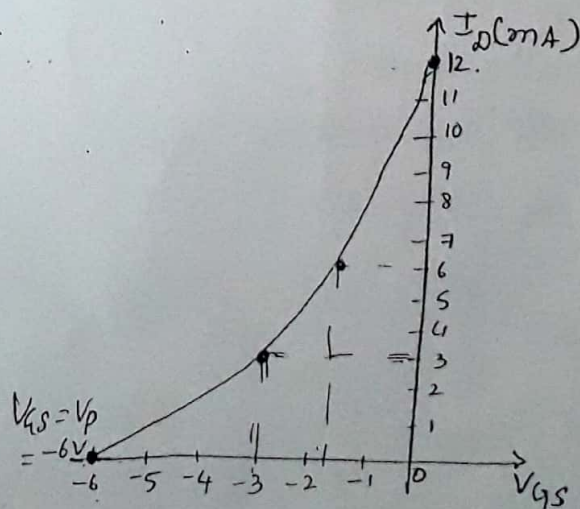 I_D (mA)
12.
11
10
9
8
7
6
5
4
3
2
1
V_GS = V_P
= -6V
-6 -5 -4 -3 -2 -1 0
V_GS